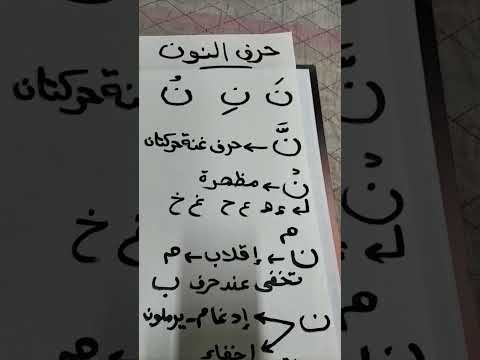 حرف النون
نَ نِ نُ
نَّ ← حرف غنة حركتان
نْ ← مظهرة
ء ه ع ح غ خ
م
ن ← إقلاب ← م
تخفى عند حرف ب
ن ← إدغام - يرملون
إخفاء